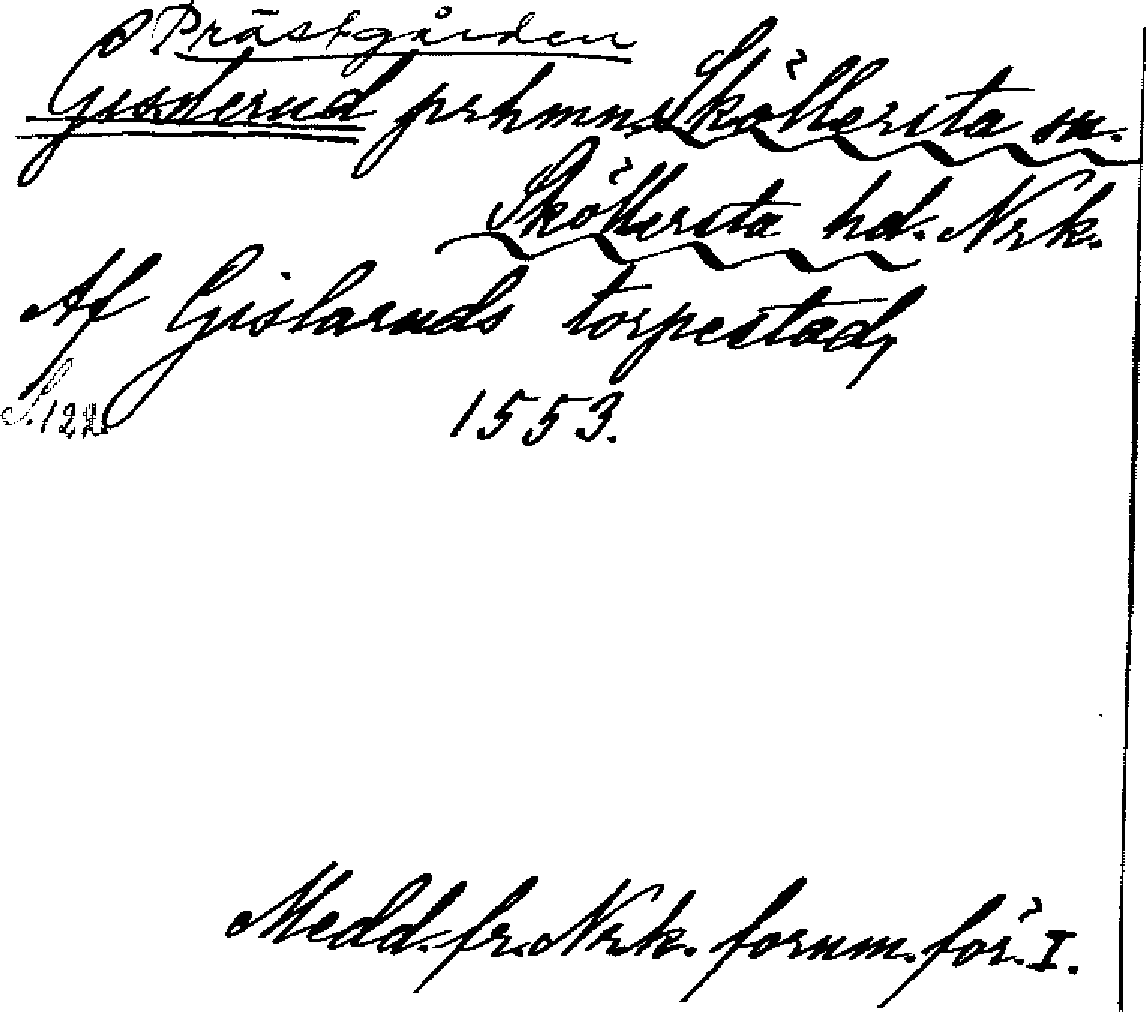 Prästgården
Gisslerud prhmn, Sköllersta sn.
Sköllersta hd. Nrk.
Af Gislaruds torpestad,
S. 122 1553.
Medd. fr. Nrk. fornm. för. I.